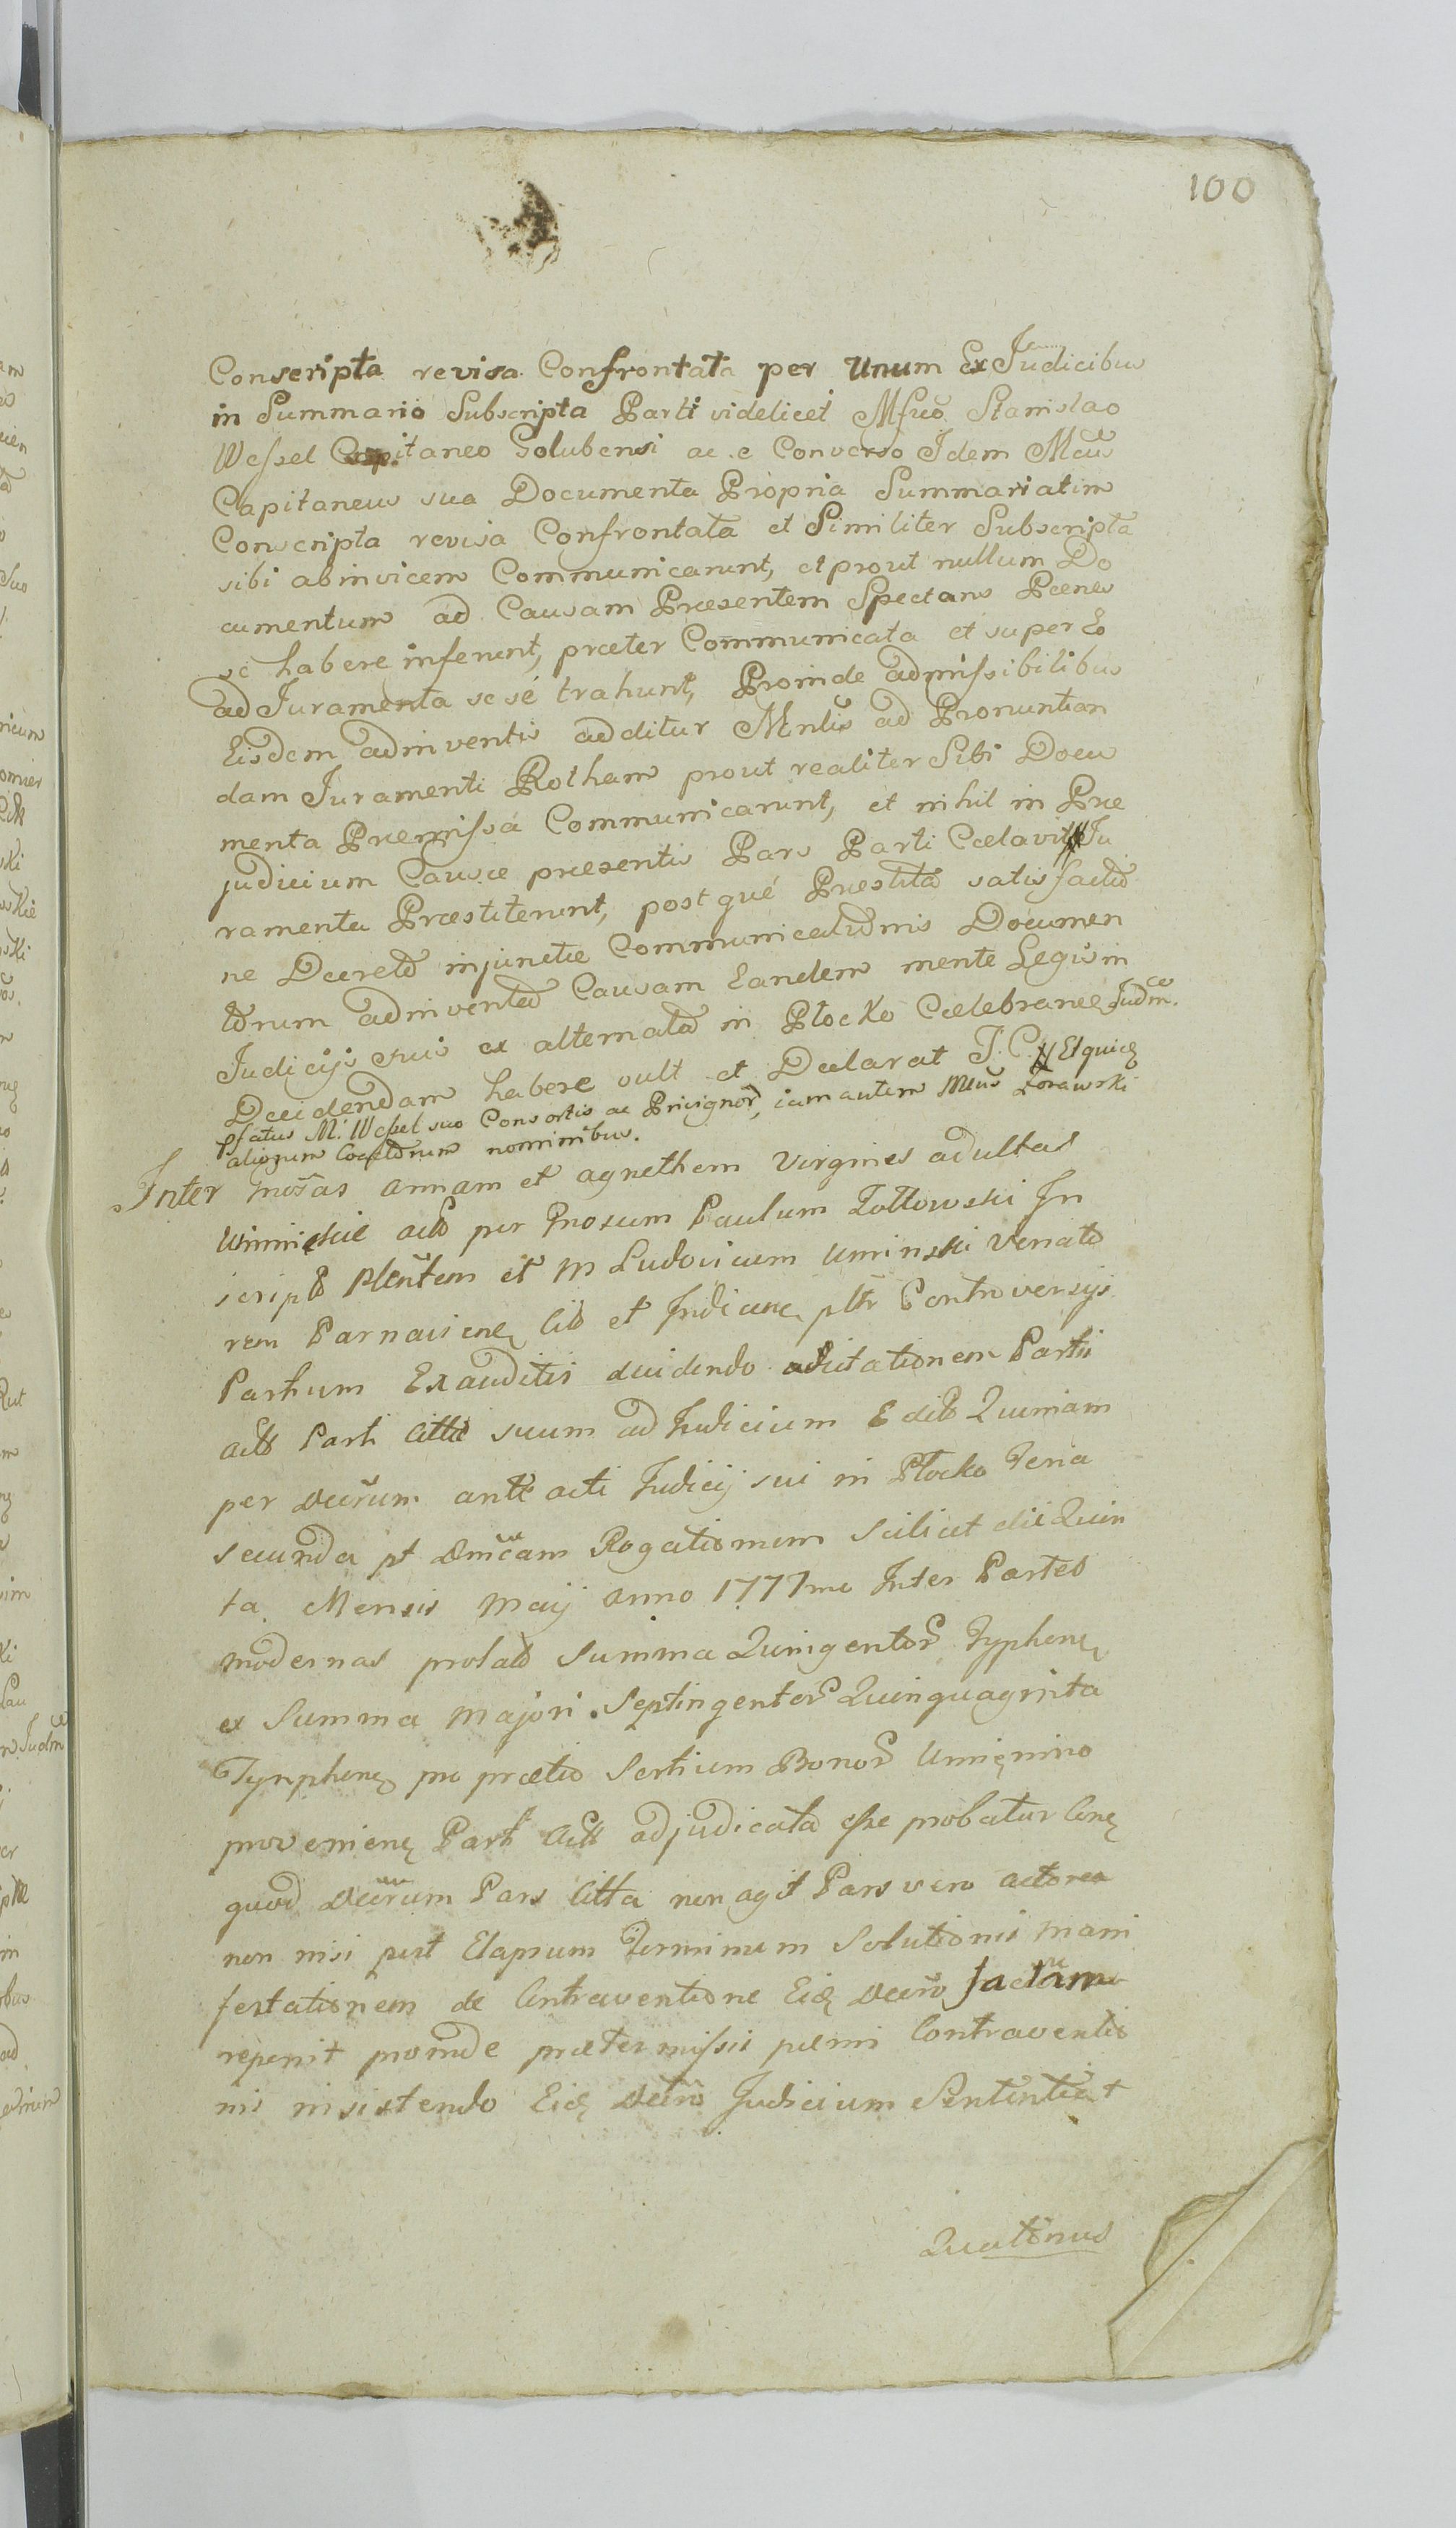 100
Conscripta revisa Confrontata per Unum Ex Judicibus
in Summario Subscripta Parti videlicet Mfico Stanislao
Wessel Capitaneo Golubensi ac e Converso Idem Mcus
Capitaneus sua Documenta Propria Summariatim
Conscripta revisa Confrontata et Similiter Subscripta
sibi abinvicem Communicarunt, et prout nullum Do
cumentum ad Causam Præsentem Spectans Pænes
se habere inferunt, præter Communicata et super Eo
ad Juramenta sesé trahunt, Proinde admissibilibus
Eisdem adinventis additur Mntlis ad Pronuntian
dam Juramenti Rotham prout realiter Sibi Docu
menta Præmissa Communicarunt, et nihil in Præ
judicium Causæ præsentis Pars Parti Cælavit Ju
ramenta Præstiterunt, post qué Præstita satisfactio
ne Decreto injunctæ Communicationis Documen
torum adinventa Causam Eandem mente Legis in
Judicijs suis ex alternata in Płocko Cælebranđ Judm.
Decidendam habere vult et Declarat J. C. Et quidę
Pfatus M. Wessel suo Consortis ac Privignor, iam autem Mcus Zorawski
aliorum Coactorum nominibus.
Inter Gnosas Annam et Agnethem Virgines adultas
Uminskie actō per Gnosum Paulum Zołtowski In
scripto Plentem et M Ludovicum Uminski Venato
rem Parnaviens Citō et Judicane pltr Controversijs
Partium Exauditis decidendo adcitationem Partis
actō Parti Cittæ suum ad Judicium Editō Quoniam
per Decrum ante acti Judicij sui in Płocko Feria
secunda pt Dnicam Rogationum scilicet die Quin
ta Mensis Maij Anno 1777mo Inter Partes
modernas prolatō Summa Quingentor Tynphenę
ex Summa Majori Septingentor Quinquaginta
Tynphenę pro prætio Sortium Bonor Umięnino
provenienę Parti Actō adjudicata esse probatur Cnę
quod Decrum Pars Citta non agit Pars vero actorea
non nisi post Elapsum Terminum Solutionis mani
festationem de Contraventione Eidę Decro factam
reperiit proinde prætermissis pænis Contraventio
nis insistendo Eidę Decro Judicium Sententiat
Quatenus